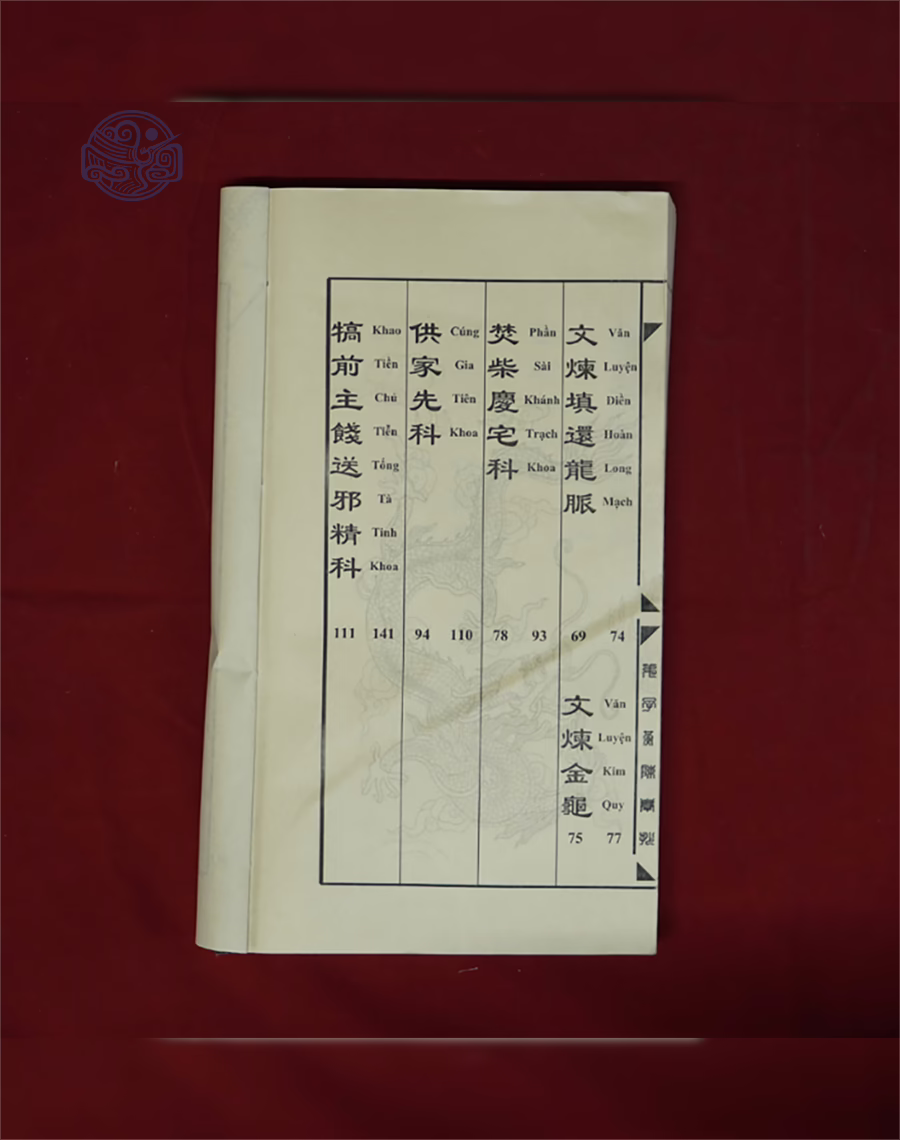 文煉填還龍脈
Văn Luyện Diền Hoàn Long Mạch
69 74
文煉金龜
Văn Luyện Kim Quy
75 77
焚柴慶宅科
Phần Sài Khánh Trạch Khoa
78 93
供家先科
Cúng Gia Tiên Khoa
94 110
犒前主餞送邪精科
Khao Tiền Chủ Tiễn Tống Tà Tinh Khoa
111 141